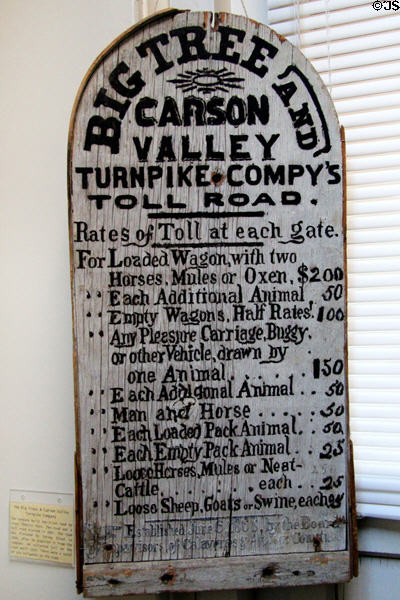 © JS
BIG TREE AND
CARSON
VALLEY
TURNPIKE COMPY'S
TOLL ROAD.
Rates of Toll at each gate.
For Loaded Wagon, with two
Horses, Mules or Oxen, $2.00
" Each Additional Animal 50
" Empty Wagons, Half Rates, 100
" Any Pleasure Carriage, Buggy,
or other Vehicle, drawn by
one Animal ...... 150
" Each Additional Animal .... 50
" Man and Horse ..... 50
" Each Loaded Pack Animal.. 50
" Each Empty Pack Animal .. 25
" Loose Horses, Mules or Neat-
Cattle ........ each .. 25
" Loose Sheep, Goats or Swine, each
Established June by the Board
of Calaveras